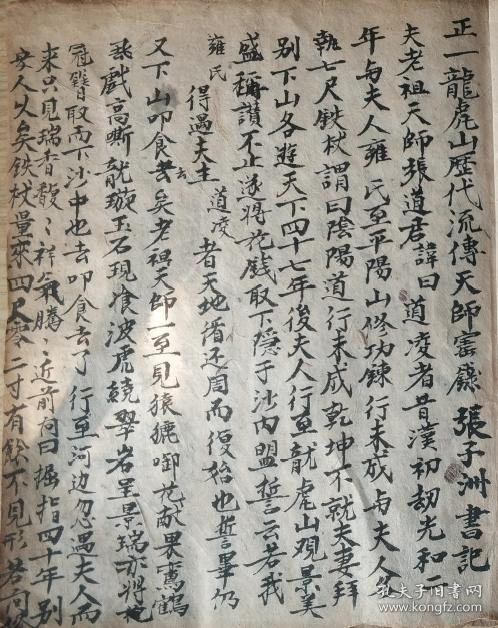 正一龍虎山歷代流傳天師密錄 張子洲書記
夫老祖天師張道君諱曰道凌者昔漢初劫光和丁
年与夫人雍氏至平陽山修功鍊行未成与夫人
執七尺鉄杖謂曰陰陽道行未成乾坤不就夫妻拜
别下山各遊天下四十七年後夫人行至龍虎山观景美
盛稱讃不止遂将花钱取下隱于沙内盟誓云若我
雍氏得遇夫主道凌者天地循还周而復始也誓畢仍
又下山叩食去矣老祖天師一至見猿猇啣花献果鸞鶴
戲高嘶龍璇玉石現飡波虎繞翠岩呈景瑞亦将
冠簪取而下沙中也去叩食去了行至河边忽遇夫人而
来只見瑞香馥〻祥氣騰〻近前问曰掘指四十年别
安人以矣鉄杖量來四尺零二寸有餘不見形若
孔夫子旧书网
www.kongfz.com